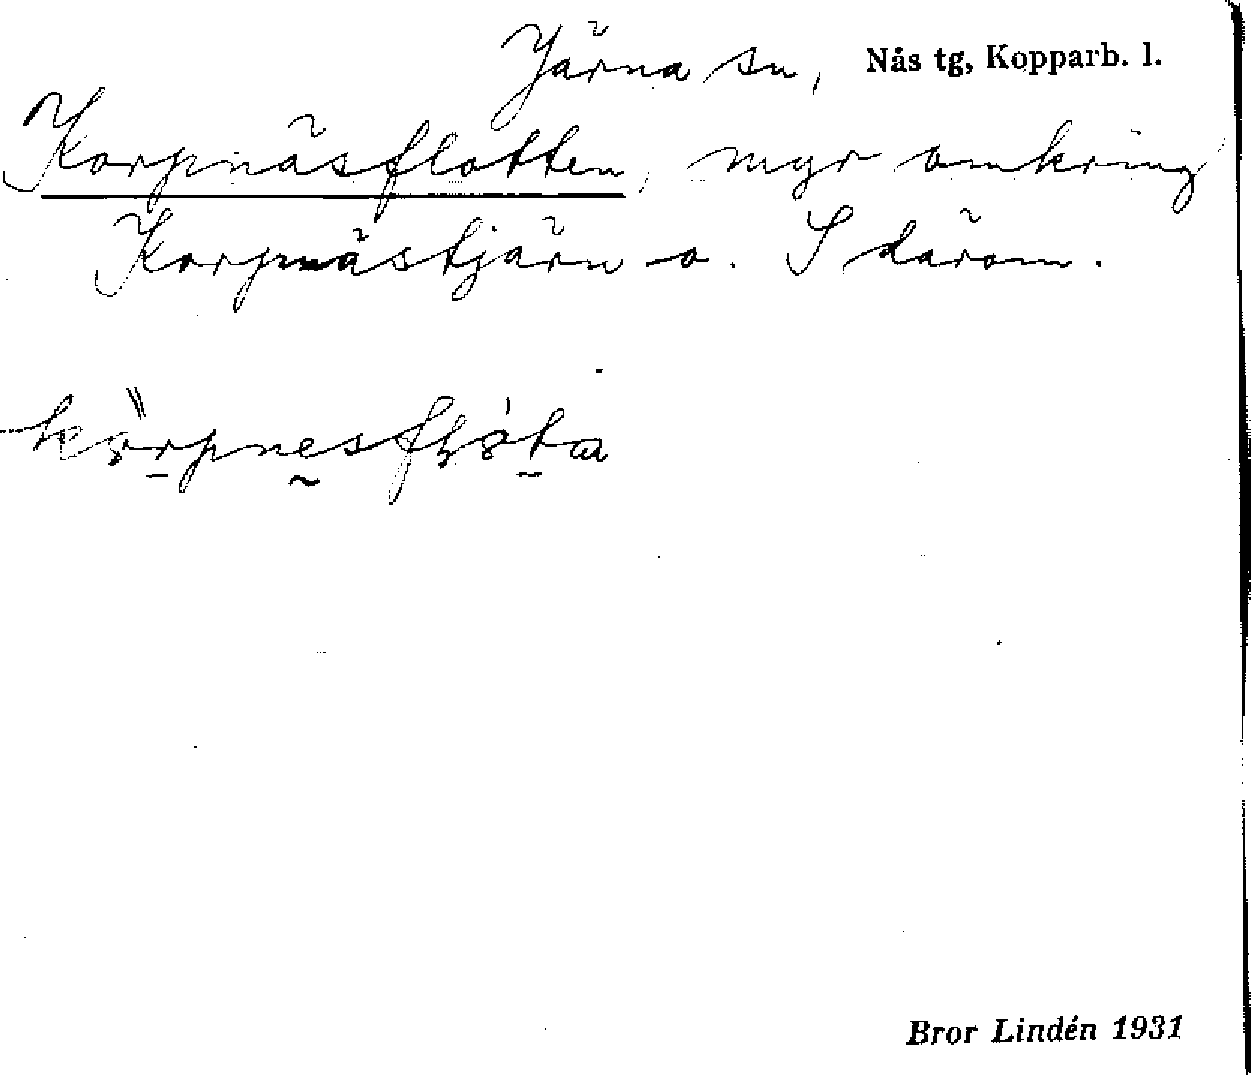 Järna sn, Nås tg, Kopparb. l.
Korpnäsflotten, myr omkring
Korpnästjärn o. S därom.
Bror Lindén 1931